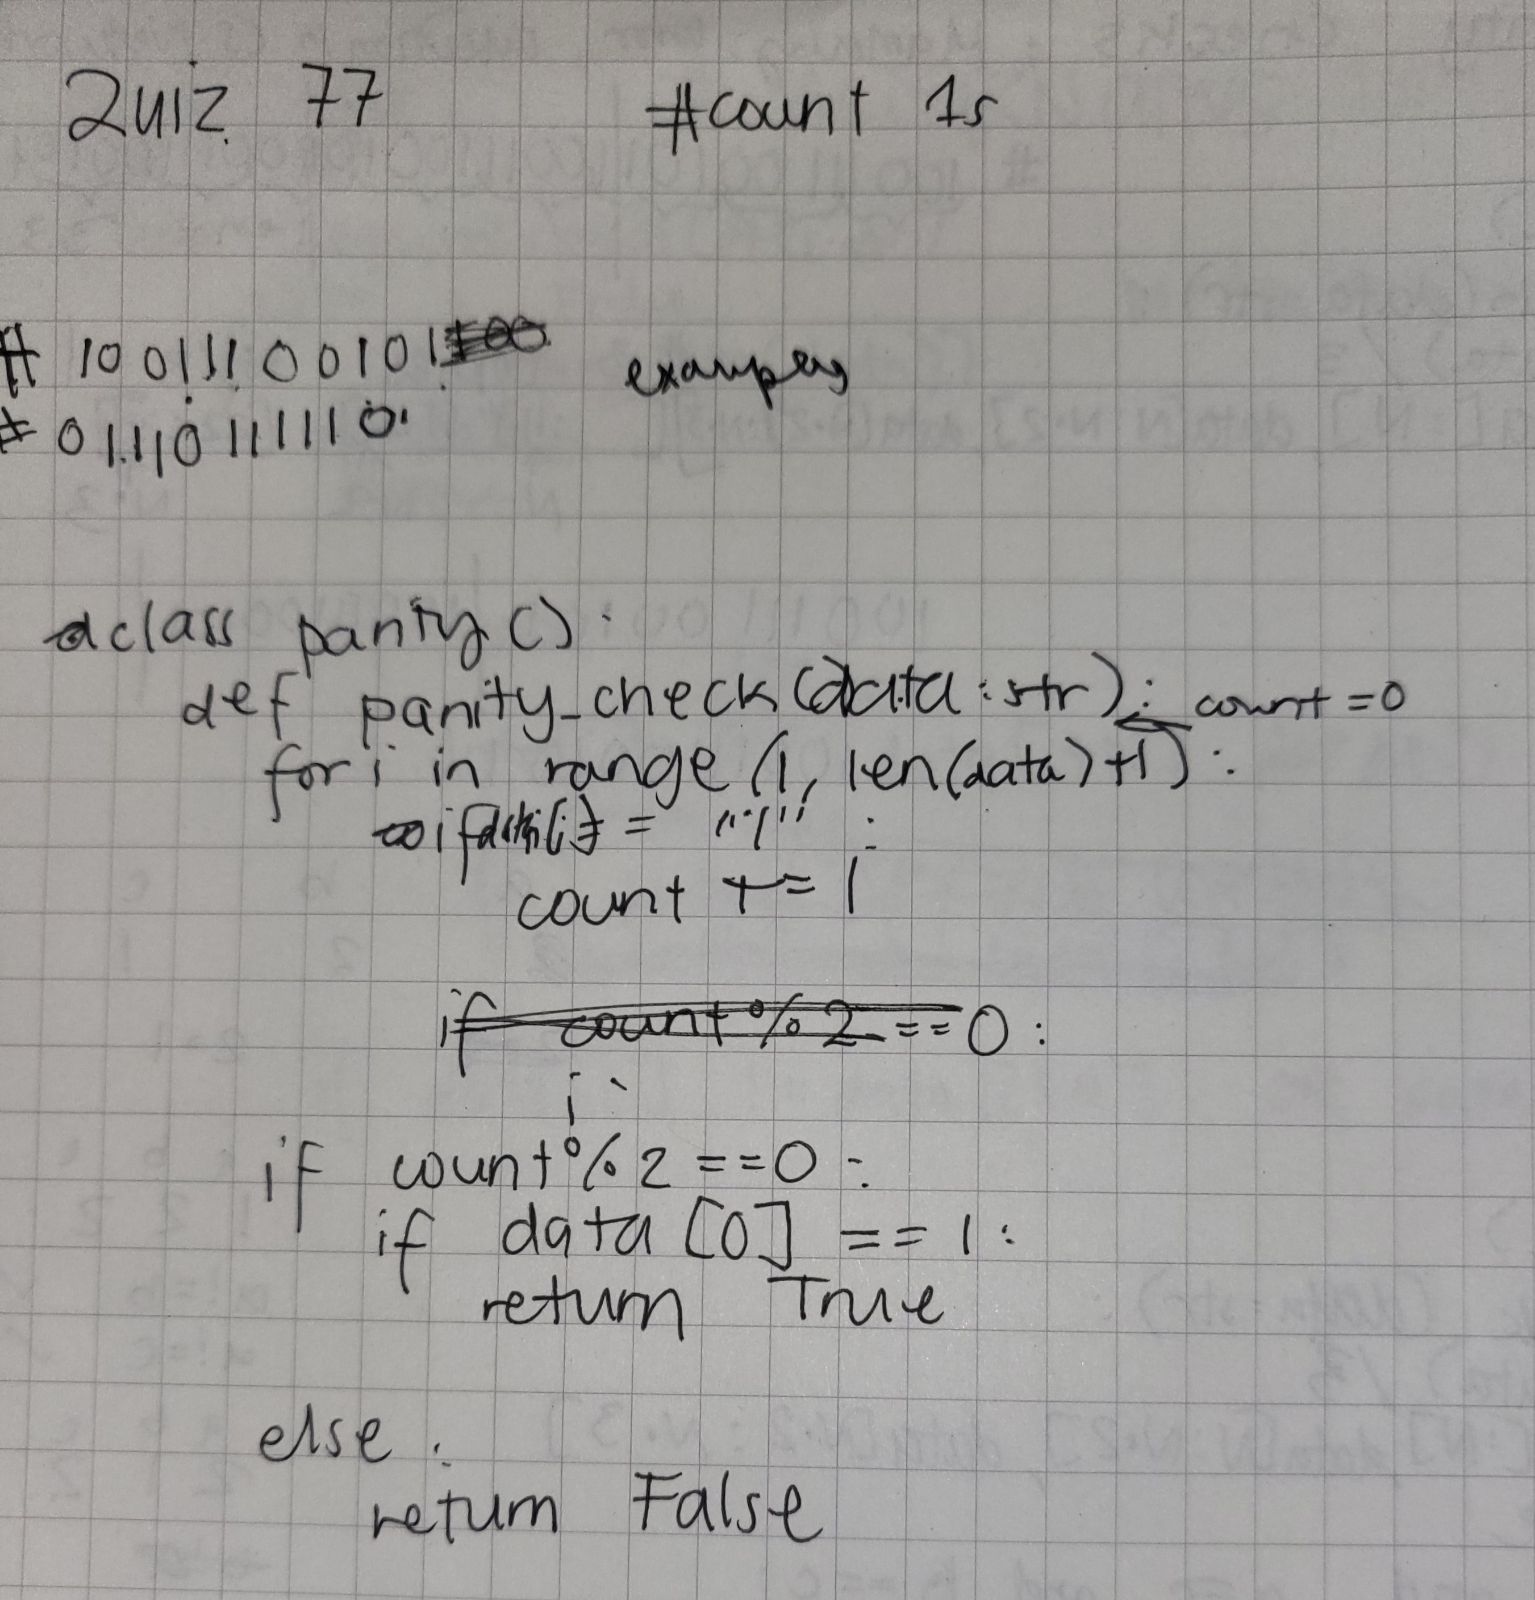 Quiz 77 #count 1s
# 100111100101
examples
# 011101111110
class parity():
def parity_check(data:str): count=0
for i in range(1, len(data)+1):
if data[i] = "1":
count += 1
if count%2 == 0:
i
if count%2 ==0:
if data[0] == 1:
return True
else:
return False